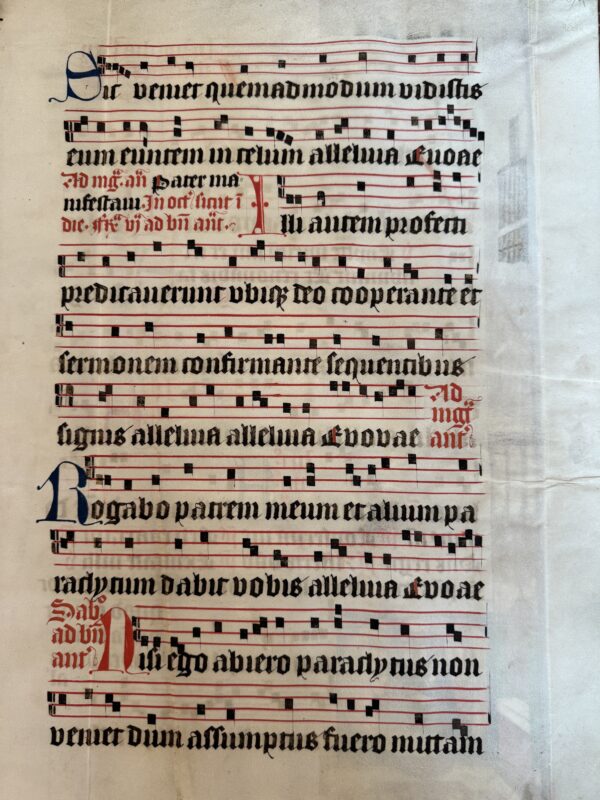 Sic veniet quemadmodum vidistis
eum euntem in celum alleluia Euoae
Ad mgͣ. an̄ Pater ma
nifestaui. In octͣ sicut ī
die. ffͣ vj ad bn̄ an̄t.
Illi autem profecti
predicauerunt vbiqꝫ deo cooperante et
sermonem confirmante sequentibus
signis alleluia alleluia Evovae
Ad
mgͣ
an̄t
Rogabo patrem meum et alium pa
raclytum dabit vobis alleluia Evoae
Sabͦ
ad bn̄
ant̄
Nisi ego abiero paraclytus non
veniet dum assumptus fuero mittam